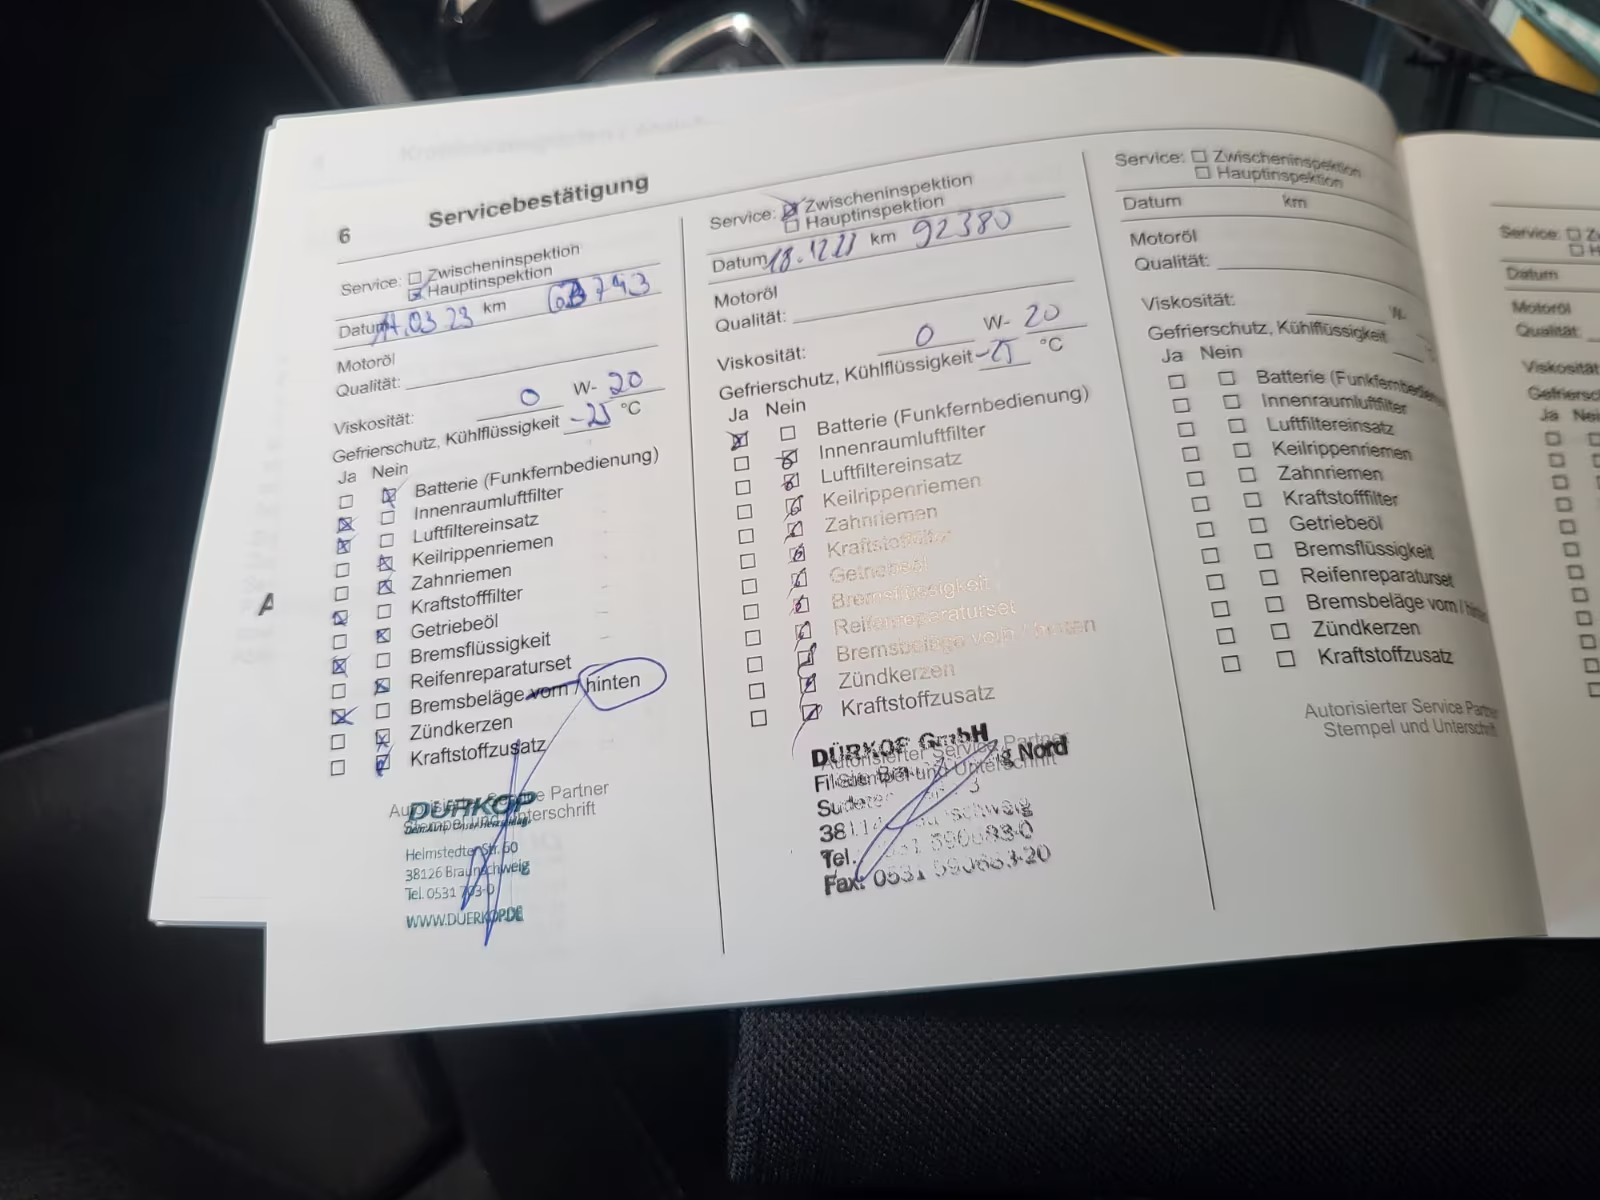 6 Servicebestätigung
Service: Zwischeninspektion
Hauptinspektion
Datum .03 23 km
Motoröl
Qualität:
Viskosität: 0 W- 20
Gefrierschutz, Kühlflüssigkeit -25 °C
Ja Nein
Batterie (Funkfernbedienung)
Innenraumluftfilter
Luftfiltereinsatz
Keilrippenriemen
Zahnriemen
Kraftstofffilter
Getriebeöl
Bremsflüssigkeit
Reifenreparaturset
Bremsbeläge vorn / hinten
Zündkerzen
Kraftstoffzusatz
Autorisierter Service Partner
Stempel und Unterschrift
DÜRKOP
Helmstedter Str. 60
38126 Braunschweig
Tel. 0531 703-0
WWW.DUERKOP.DE
Service: Zwischeninspektion
Hauptinspektion
Datum km 92380
Motoröl
Qualität:
Viskosität: 0 W- 20
Gefrierschutz, Kühlflüssigkeit °C
Ja Nein
Batterie (Funkfernbedienung)
Innenraumluftfilter
Luftfiltereinsatz
Keilrippenriemen
Zahnriemen
Kraftstofffilter
Getriebeöl
Bremsflüssigkeit
Reifenreparaturset
Bremsbeläge vorn / hinten
Zündkerzen
Kraftstoffzusatz
Autorisierter Service Partner
Stempel und Unterschrift
DÜRKOP GmbH
Nord
Tel.
Fax: 0531 590683-20
Service: Zwischeninspektion
Hauptinspektion
Datum km
Motoröl
Qualität:
Viskosität: W-
Gefrierschutz, Kühlflüssigkeit
Ja Nein
Batterie (Funkfernbedienung)
Innenraumluftfilter
Luftfiltereinsatz
Keilrippenriemen
Zahnriemen
Kraftstofffilter
Getriebeöl
Bremsflüssigkeit
Reifenreparaturset
Bremsbeläge vorn / hinten
Zündkerzen
Kraftstoffzusatz
Autorisierter Service Partner
Stempel und Unterschrift
Service:
Datum
Motoröl
Qualität:
Viskosität
Ja